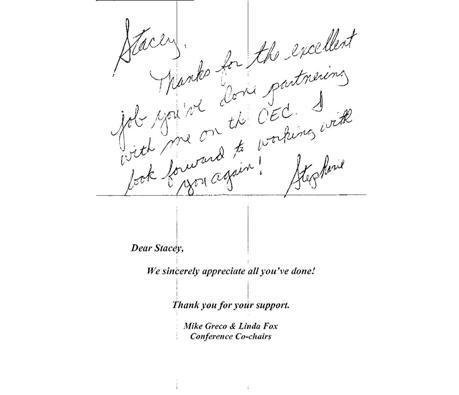 Stacey,
Thanks for the excellent
job you've done partnering
with me on the CEC. I
look forward to working with
you again!
Stephene
Dear Stacey,
We sincerely appreciate all you've done!
Thank you for your support.
Mike Greco & Linda Fox
Conference Co-chairs